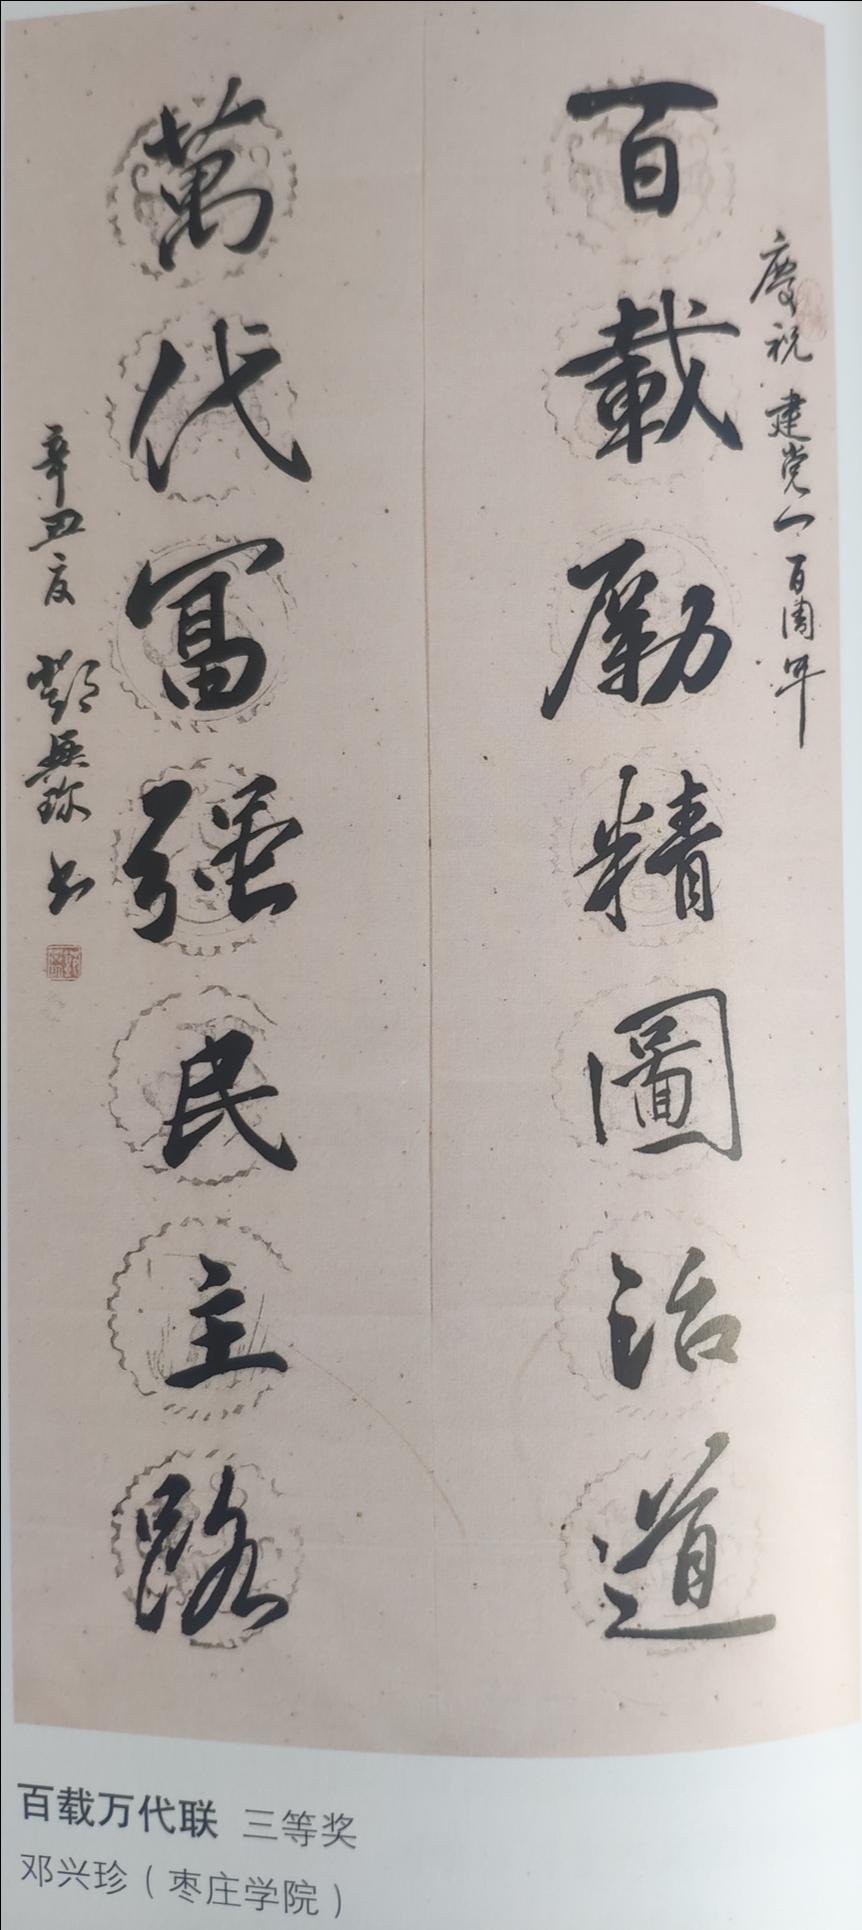 慶祝建党一百周年
百載勵精圖治道
萬代富强民主路
辛丑夏鄧興珍书
百载万代联 三等奖
邓兴珍（枣庄学院）